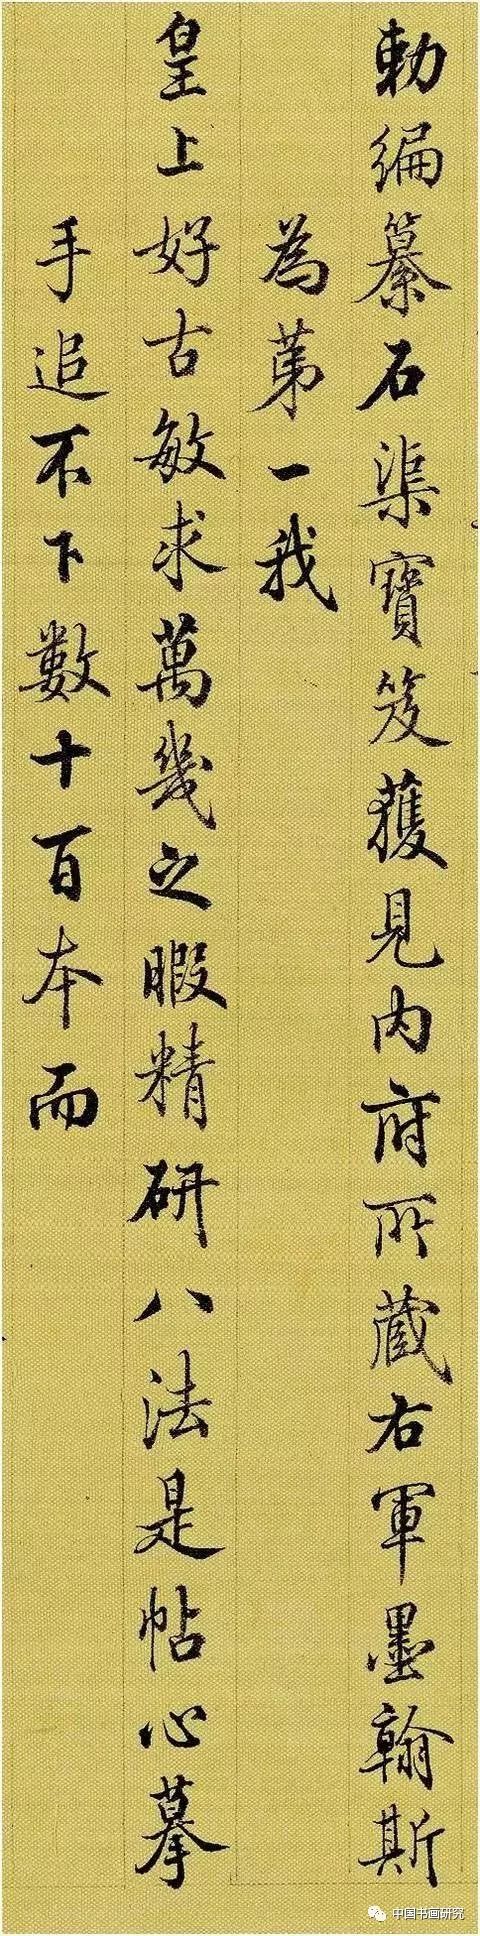 勅編纂石渠寶笈獲見內府所蔵右軍墨翰斯
為苐一我
皇上好古敏求萬幾之暇精研八法是帖心摹
手追不下數十百本而
中国书画研究